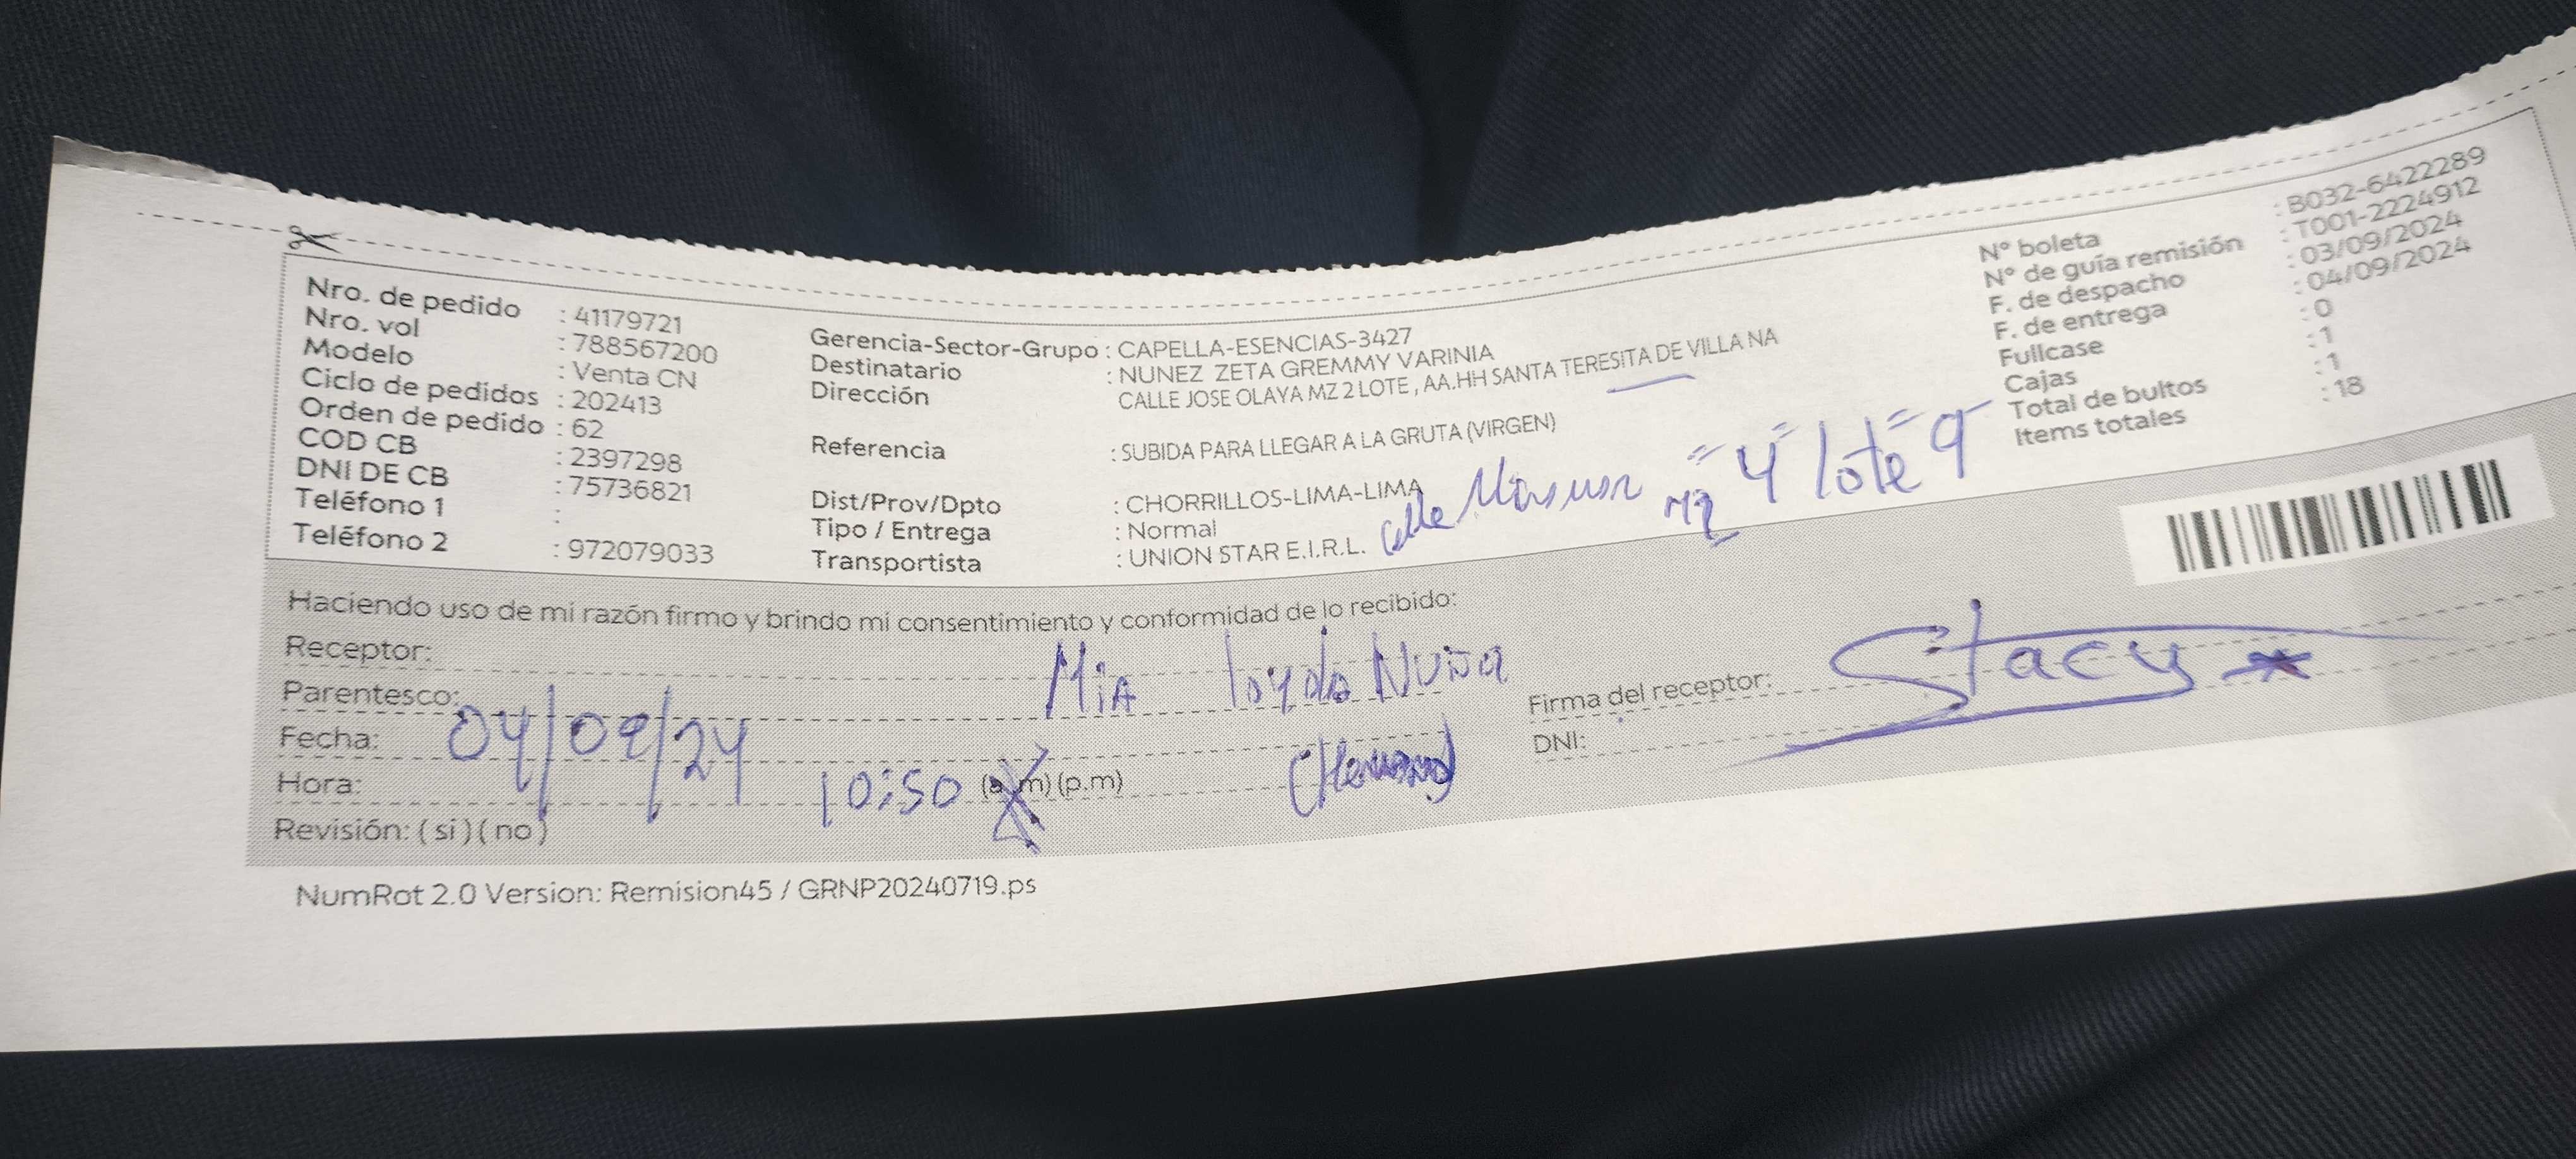 Nro. de pedido : 41179721
Nro. vol : 788567200
Modelo : Venta CN
Ciclo de pedidos : 202413
Orden de pedido : 62
COD CB : 2397298
DNI DE CB : 75736821
Teléfono 1 :
Teléfono 2 : 972079033
Gerencia-Sector-Grupo : CAPELLA-ESENCIAS-3427
Destinatario : NUNEZ ZETA GREMMY VARINIA
Dirección CALLE JOSE OLAYA MZ 2 LOTE , AA.HH SANTA TERESITA DE VILLA NA
Referencia : SUBIDA PARA LLEGAR A LA GRUTA (VIRGEN)
Dist/Prov/Dpto : CHORRILLOS-LIMA-LIMA
Tipo / Entrega : Normal
Transportista : UNION STAR E.I.R.L.
calle Mz 4 lote 9
N° boleta : B032-6422289
N° de guía remisión : T001-2224912
F. de despacho : 03/09/2024
F. de entrega : 04/09/2024
Fullcase : 0
Cajas : 1
Total de bultos : 1
Items totales : 18
Haciendo uso de mi razón firmo y brindo mi consentimiento y conformidad de lo recibido:
Receptor: Mia loyola
Parentesco:
Fecha: 04/09/24
Hora: 10:50 (a.m) (p.m)
Revisión: ( si ) ( no )
Firma del receptor: Stacy
DNI:
NumRot 2.0 Version: Remision45 / GRNP20240719.ps